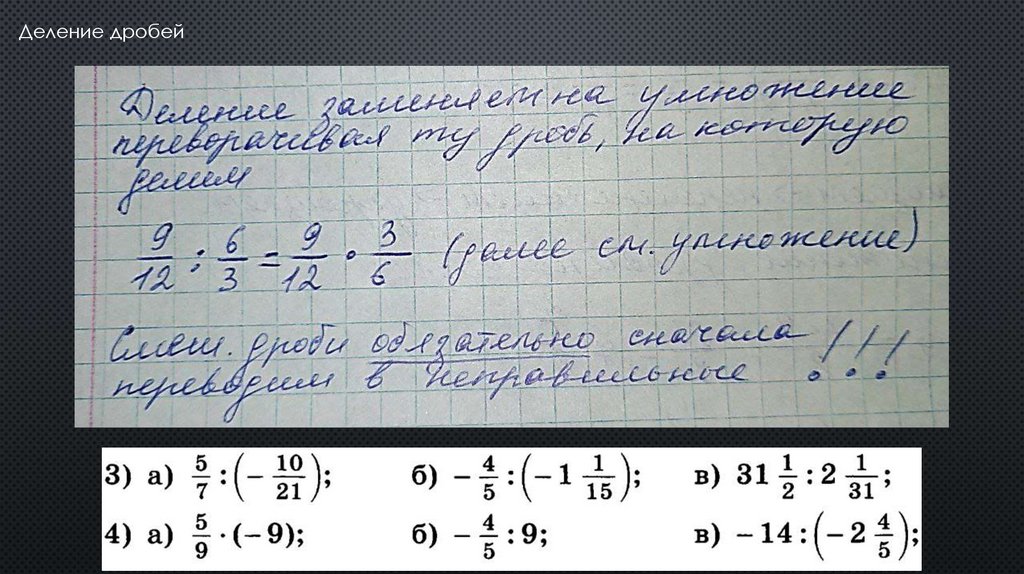 Деление дробей
Деление заменяем на умножение
переворачивая ту дробь, на которую
делим
9/12 : 6/3 = 9/12 · 3/6 (далее см. умножение)
Смеш. дроби обязательно сначала
переводим в неправильные !!!
3) а) 5/7 : (− 10/21); б) − 4/5 : (−1 1/15); в) 31 1/2 : 2 1/31;
4) а) 5/9 · (−9); б) − 4/5 : 9; в) −14 : (−2 4/5);